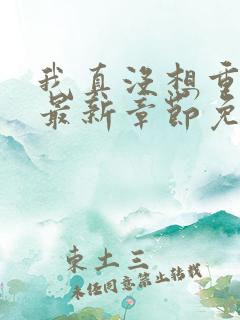 我真没想重
最新章节免
东土三
未经同意禁止转载